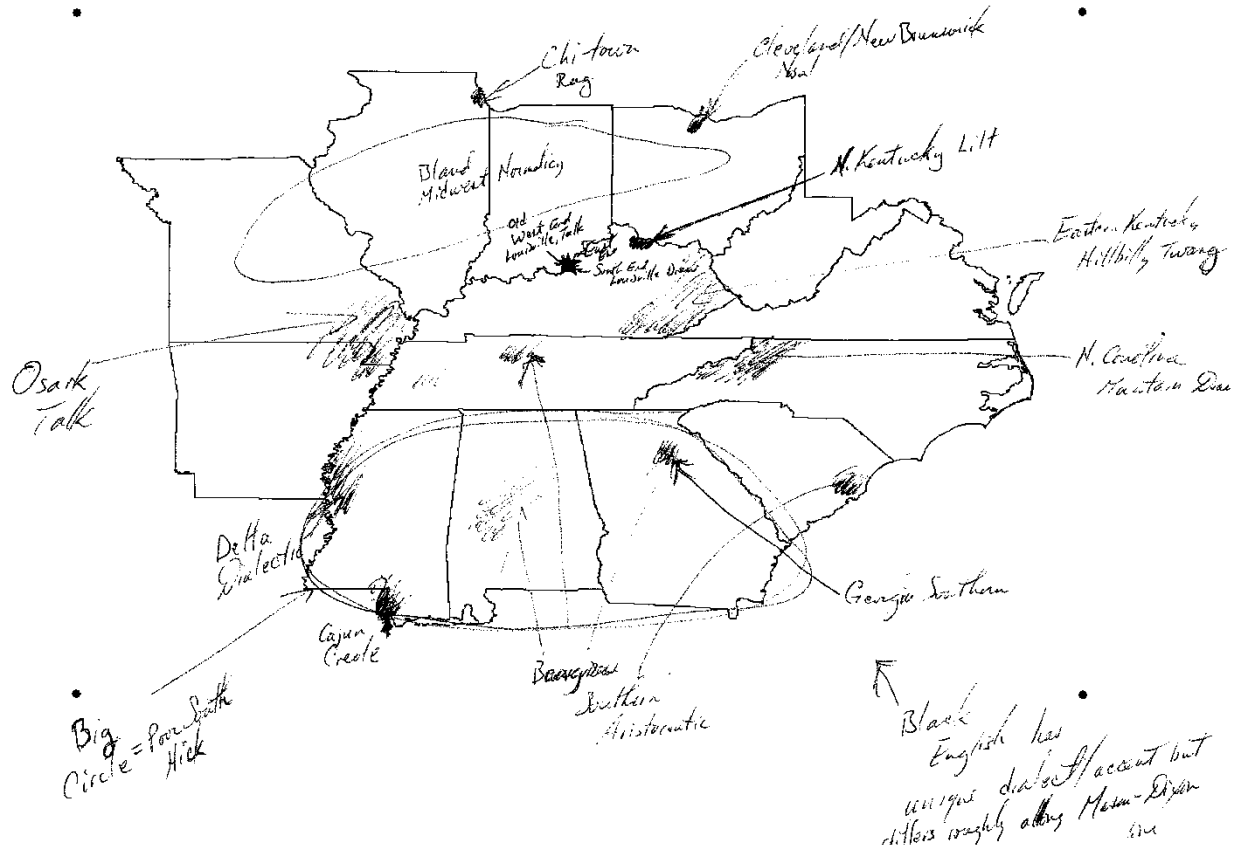 Chi-town
Rag
Cleveland/New Brunswick
Nasal
Bland
Midwest Normalcy
N. Kentucky Lilt
Old
West End
Louisville Talk
East
End
South End
Louisville Drawl
Eastern Kentucky
Hillbilly Twang
Osark
Talk
N. Carolina
Mountain
Delta
Dialectic
Cajun
Creole
Georgia Southern
Southern
Aristocratic
Big
Circle = Poor South
Hick
Black
English has
unique dialect/accent but
differs roughly along Mason-Dixon
line